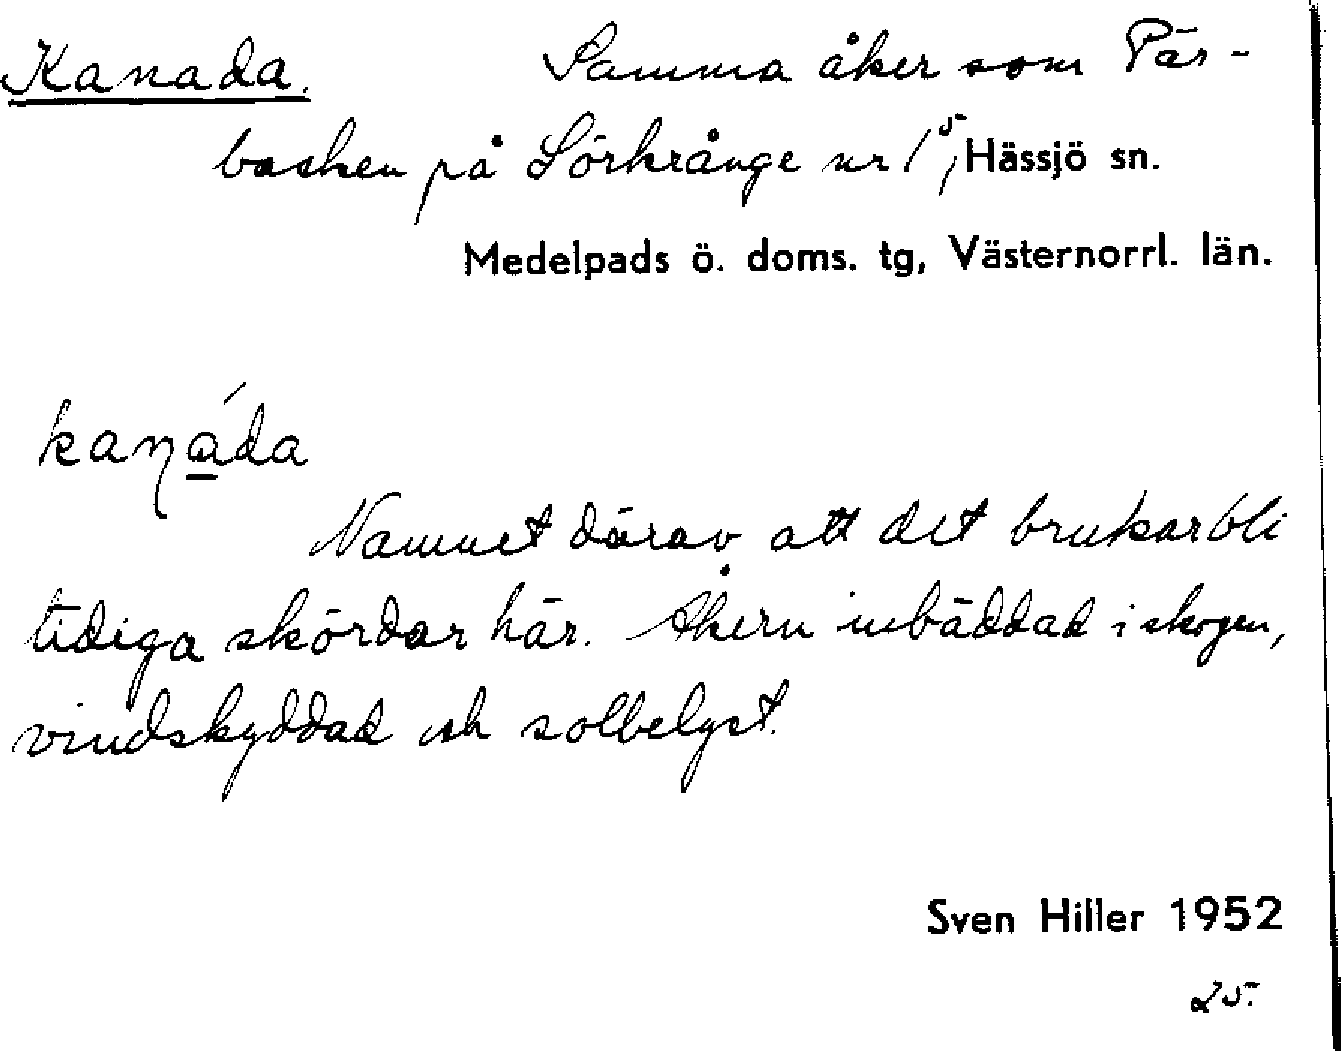 Kanada. Samma åker som Pär-
backen på Sörkrånge nr 1⁵, Hässjö sn.
Medelpads ö. doms. tg, Västernorrl. län.
kaŋáda
Namnet därav att det brukar bli
tidiga skördar här. Åkern inbäddad i skogen,
vindskyddad och solbelyst.
Sven Hiller 1952
25.